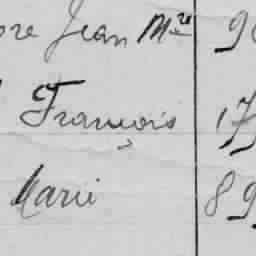 Jean Mre 9
François 17
Marie 89